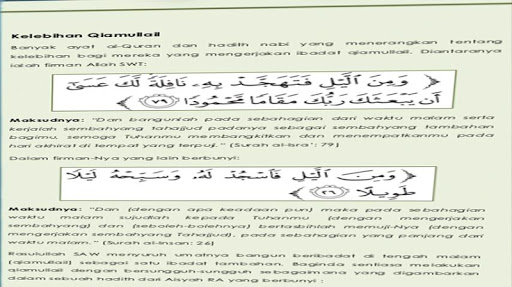 Kelebihan Qiamullail
Banyak ayat al-Quran dan hadith nabi yang menerangkan tentang
kelebihan bagi mereka yang mengerjakan ibadat qiamullail. Diantaranya
ialah firman Allah SWT:
﴿ وَمِنَ ٱلَّيْلِ فَتَهَجَّدْ بِهِۦ نَافِلَةً لَّكَ عَسَىٰٓ
أَن يَبْعَثَكَ رَبُّكَ مَقَامًا مَّحْمُودًا ﴿٧٩﴾
Maksudnya: "Dan bangunlah pada sebahagian dari waktu malam serta
kerjalah sembahyang tahajjud padanya sebagai sembahyang tambahan
bagimu, semoga Tuhanmu membangkitkan dan menempatkanmu pada
hari akhirat di tempat yang terpuji." (Surah al-Isra': 79)
Dalam firman-Nya yang lain berbunyi:
﴿ وَمِنَ ٱلَّيْلِ فَٱسْجُدْ لَهُۥ وَسَبِّحْهُ لَيْلًا
طَوِيلًا ﴿٢٦﴾
Maksudnya: "Dan (dengan apa keadaan pun) maka pada sebahagian
waktu malam sujudlah kepada Tuhanmu (dengan mengerjakan
sembahyang) dan (seboleh-bolehnya) bertasbihlah memuji-Nya (dengan
mengerjakan sembahyang Tahajud), pada sebahagian yang panjang dari
waktu malam." (Surah al-Insan: 26)
Rasulullah SAW menyuruh umatnya bangun beribadat di tengah malam
(qiamullail) sebagai satu ibadat tambahan. Baginda sentiasa melakukan
qiamullail dengan bersungguh-sungguh sebagaimana yang digambarkan
dalam sebuah hadith dari Aisyah RA yang berbunyi :